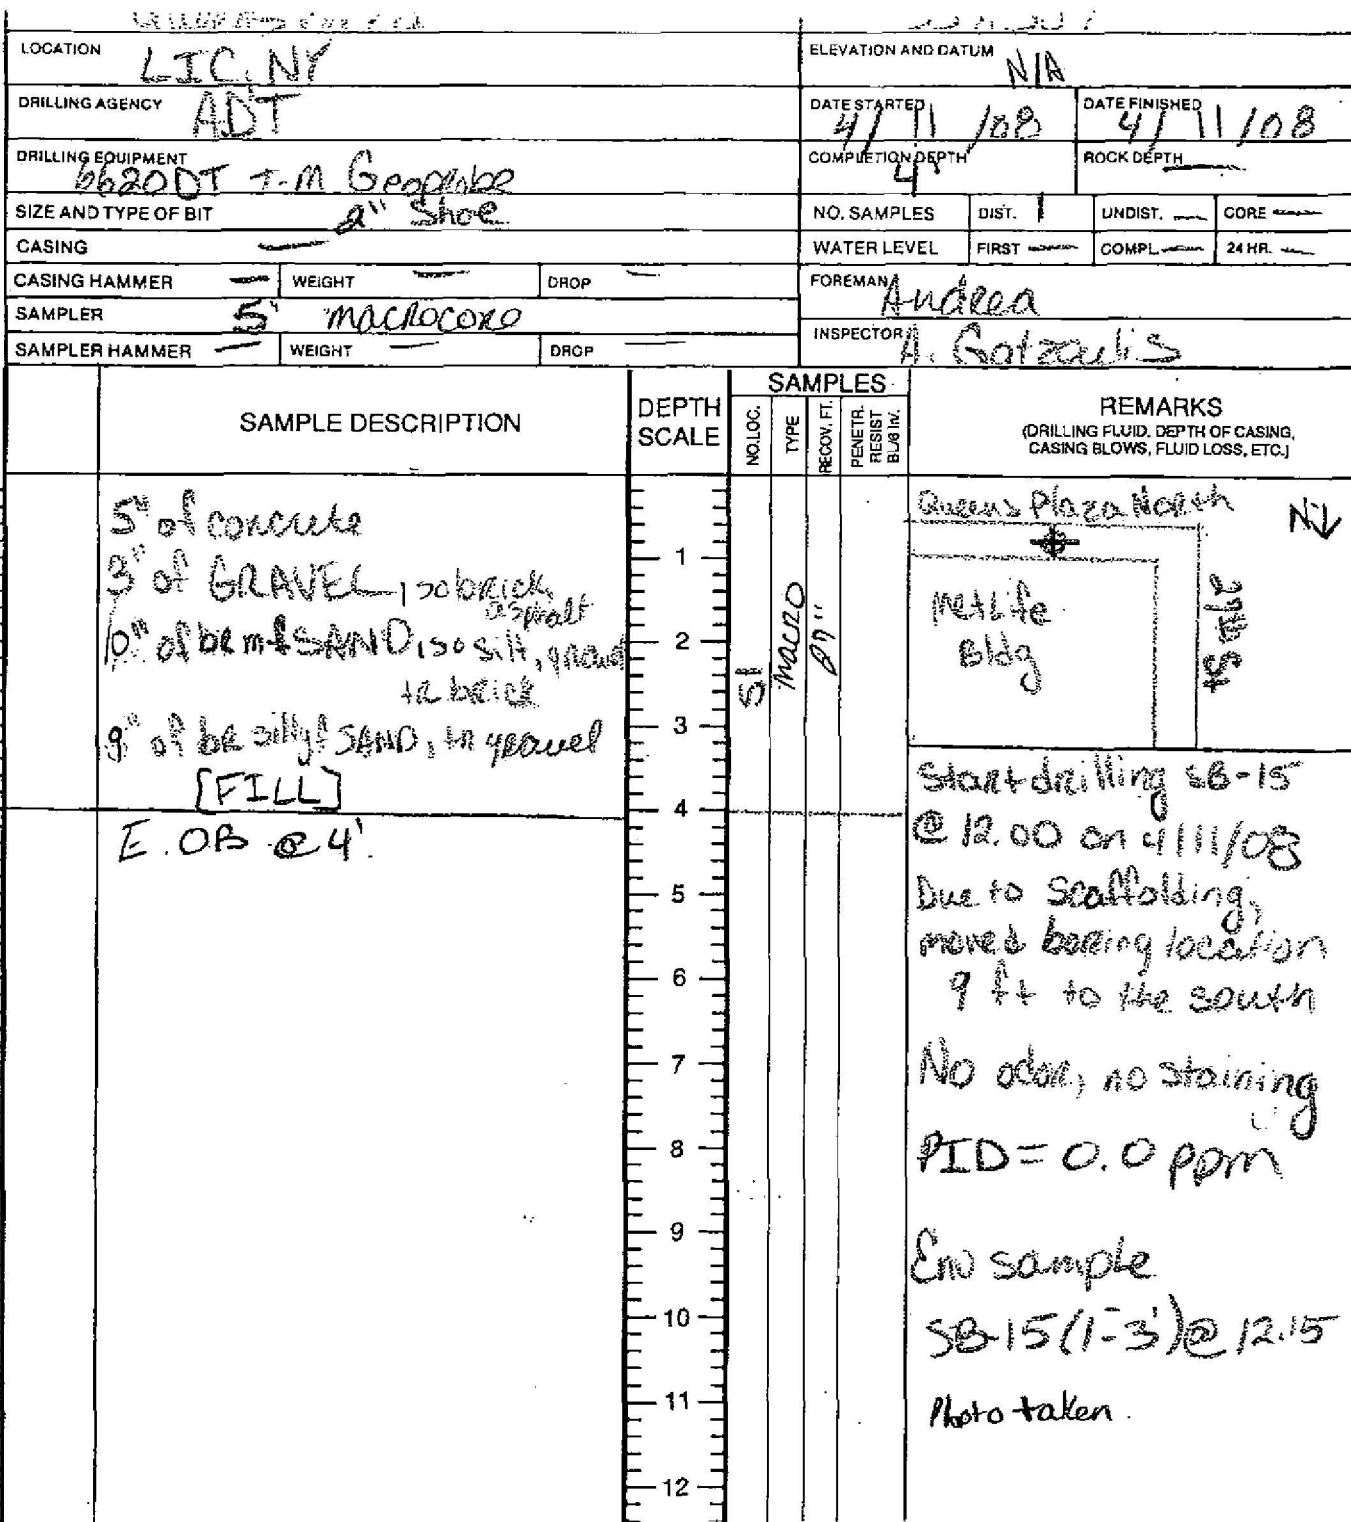 LOCATION LIC, NY
ELEVATION AND DATUM N/A
DRILLING AGENCY ADT
DATE STARTED 4/11/08
DATE FINISHED 4/11/08
DRILLING EQUIPMENT 6620DT T-M Geoprobe
COMPLETION DEPTH 4'
ROCK DEPTH —
SIZE AND TYPE OF BIT 2" Shoe
NO. SAMPLES DIST. 1 UNDIST. — CORE —
CASING —
WATER LEVEL FIRST — COMPL. — 24 HR. —
CASING HAMMER — WEIGHT — DROP —
FOREMAN Andrea
SAMPLER 5' macrocore
INSPECTOR A. Gatzoulis
SAMPLER HAMMER — WEIGHT — DROP —
SAMPLE DESCRIPTION
DEPTH SCALE
SAMPLES
NO.LOC.
TYPE
RECOV. FT.
PENETR. RESIST BL/6 In.
REMARKS
(DRILLING FLUID, DEPTH OF CASING,
CASING BLOWS, FLUID LOSS, ETC.)
5" of concrete
3" of GRAVEL, so brick,
asphalt
10" of br m-f SAND, so silt, gravel
tr brick
9" of br silty f SAND, tr gravel
[FILL]
E.OB @ 4'.
1
2
3
4
5
6
7
8
9
10
11
12
S1
MACRO
27"
Queens Plaza North
N↓
MetLife
Bldg
Start drilling SB-15
@ 12.00 on 4/11/08
Due to Scaffolding,
moved boring location
9 ft to the south
No odor, no staining
PID = 0.0 ppm
Env sample
SB-15(1-3')@ 12.15
Photo taken.